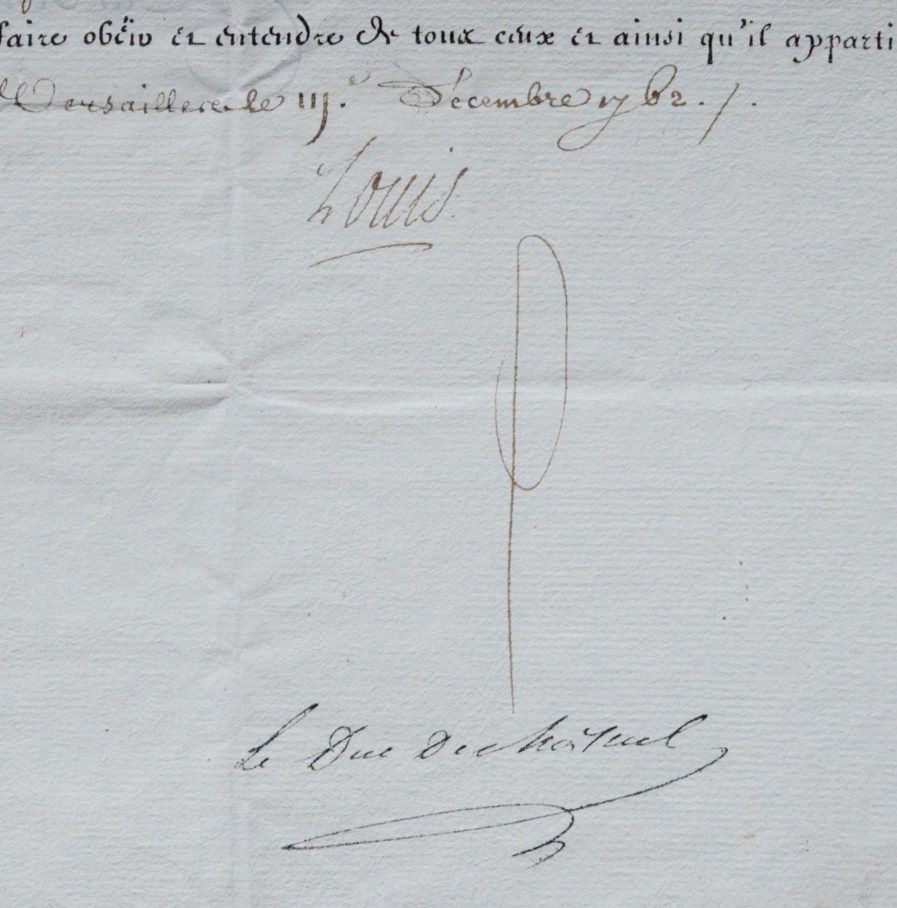 faire obëir et entendre de tous ceux et ainsi qu'il apparti
Versailles le iij.e Décembre 1762./.
Louis
Le Duc De Choiseul